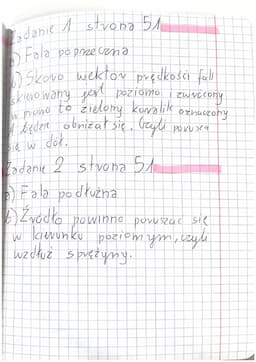 Zadanie 1 strona 51
a) Fala poprzeczna
b) Skoro wektor prędkości fali
skierowany jest poziomo i zwrócony
w prawo to zielony koralik oznaczony
1 będzie obniżał się. Czyli porusza
się w dół.
Zadanie 2 strona 51
a) Fala podłużna
b) Źródło powinno poruszać się
w kierunku poziomym, czyli
wzdłuż sprężyny.